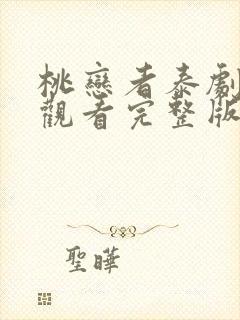 桃戀者泰劇
觀看完整版
聖曄